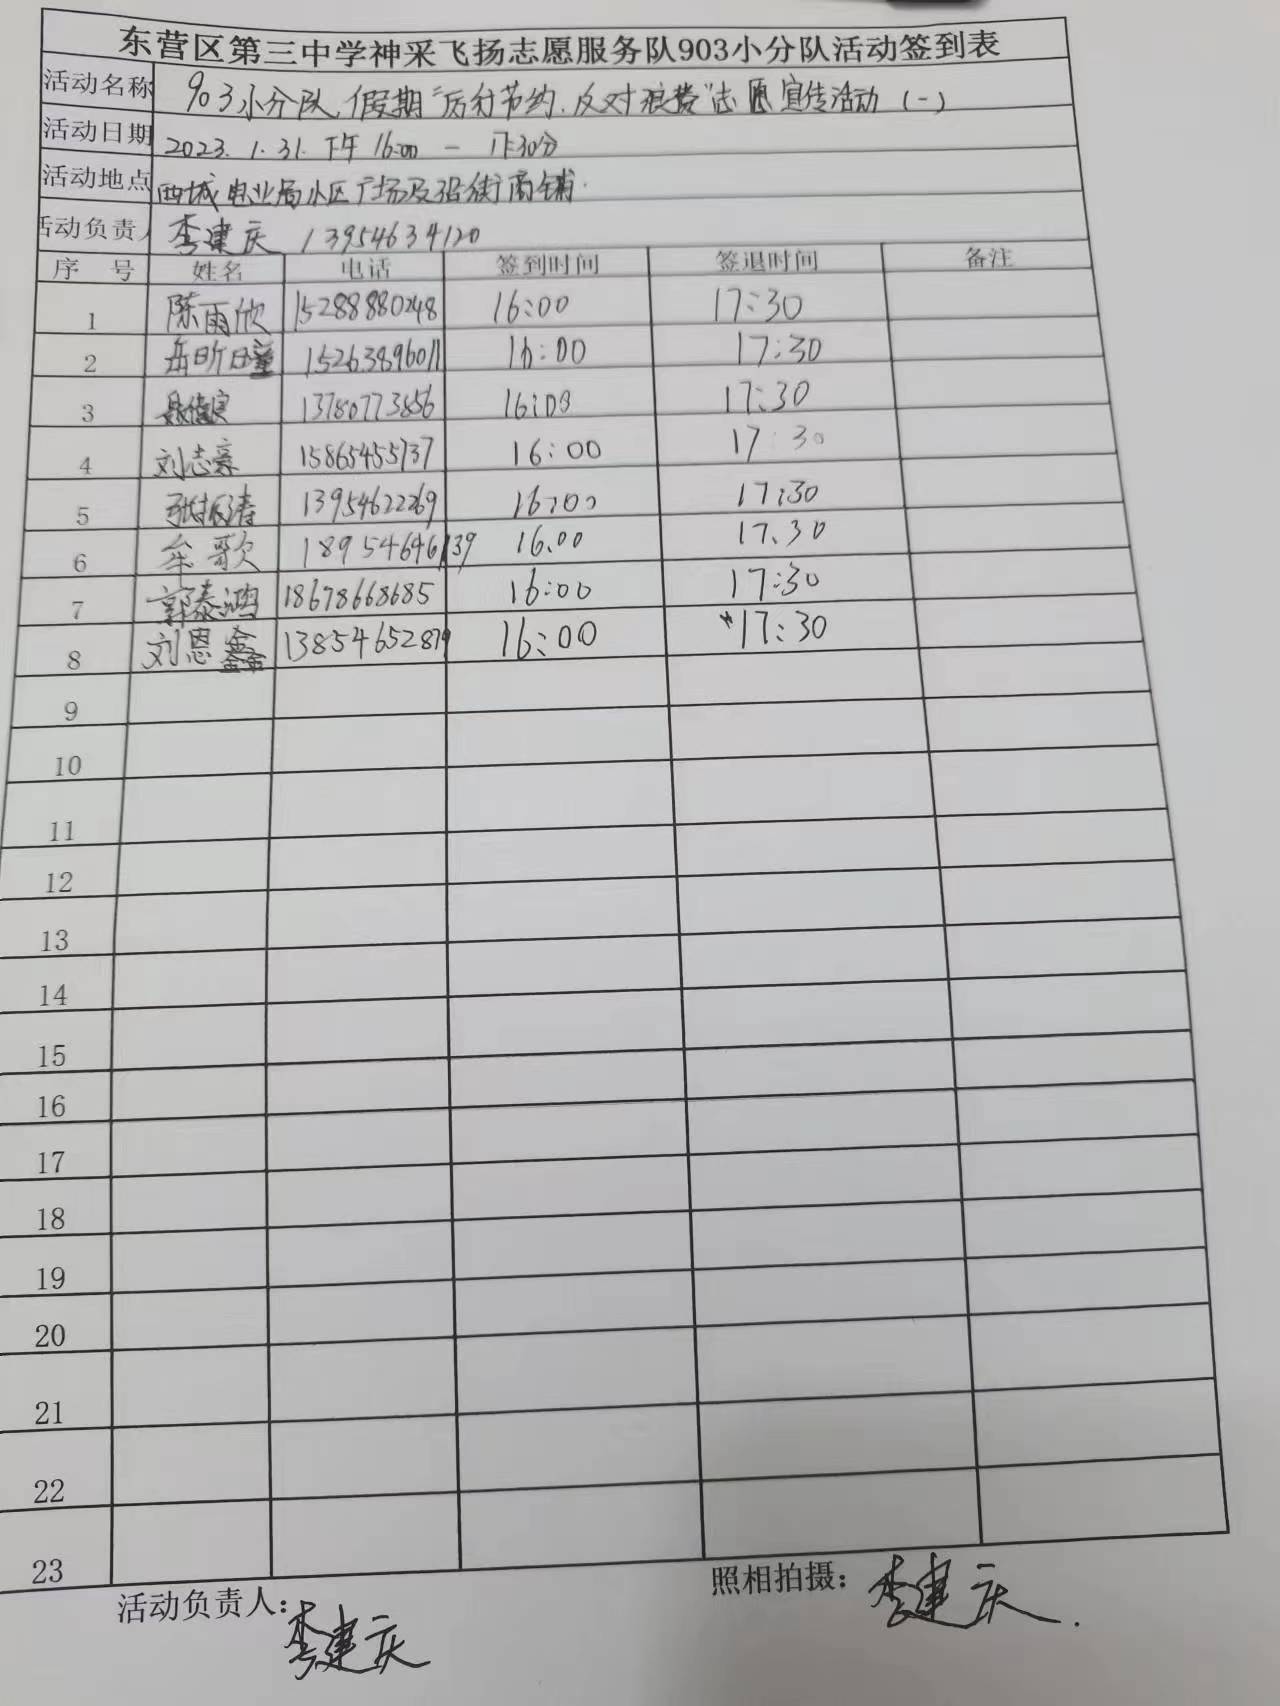 东营区第三中学神采飞扬志愿服务队903小分队活动签到表
活动名称 903小分队,假期"厉行节约.反对浪费"志愿宣传活动(一)
活动日期 2023.1.31.下午16:00 - 17:30分
活动地点 西城电业局小区广场及沿街商铺.
活动负责人 李建庆 13954634120
序 号 姓名 电话 签到时间 签退时间 备注
1 陈雨欣 15288880248 16:00 17:30
2 岳昕瞳 15263896011 16:00 17:30
3 13780773856 16:00 17:30
4 刘志豪 15865455737 16:00 17:30
5 张振涛 13954622269 16:00 17:30
6 牟歌 18954646139 16.00 17.30
7 郭泰鸿 18678668685 16:00 17:30
8 刘恩鑫 13854652879 16:00 17:30
9
10
11
12
13
14
15
16
17
18
19
20
21
22
23
活动负责人: 李建庆
照相拍摄: 李建庆.